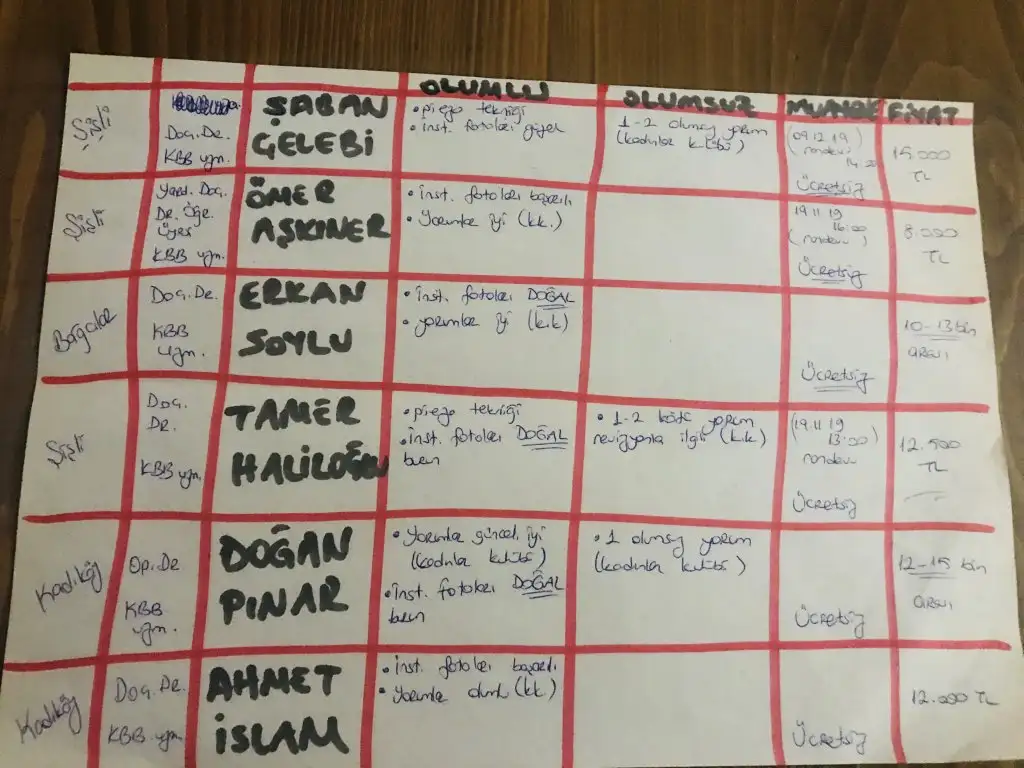 OLUMLU
OLUMSUZ
MUAYENE
FİYAT
Şişli
Doç. Dr.
KBB uzm.
ŞABAN
ÇELEBİ
• piezo tekniği
• inst. fotoları güzel
1-2 olumsuz yorum
(kadınlar kulübü)
(09.12.19
randevu
14.00
Ücretsiz
15.000
TL
Şişli
Yard. Doç.
Dr. Öğr.
Üyesi
KBB uzm.
ÖMER
AŞKINER
• inst. fotoları başarılı
• Yorumlar iyi (kk.)
19.11.19
16:00
(randevu)
Ücretsiz
8.000
TL
Bağcılar
Doç. Dr.
KBB
uzm.
ERKAN
SOYLU
• inst. fotoları DOĞAL
• yorumlar iyi (kk)
Ücretsiz
10-13 bin
arası
Şişli
Doç.
Dr.
KBB uzm.
TAMER
HALİLOĞLU
• piezo tekniği
• inst. fotoları DOĞAL
burun
• 1-2 kötü yorum
revizyonla ilgili (kk)
(19.11.19
13:00)
randevu
Ücretsiz
12.500
TL
Kadıköy
Op. Dr
KBB
uzm.
DOĞAN
PINAR
• Yorumlar güncel iyi
(kadınlar kulübü)
• inst. fotoları DOĞAL
burun
• 1 olumsuz yorum
(kadınlar kulübü)
Ücretsiz
12-15 bin
arası
Kadıköy
Doç. Dr.
KBB uzm.
AHMET
İSLAM
• inst. fotoları başarılı
• Yorumlar olumlu (kk.)
Ücretsiz
12.000 TL